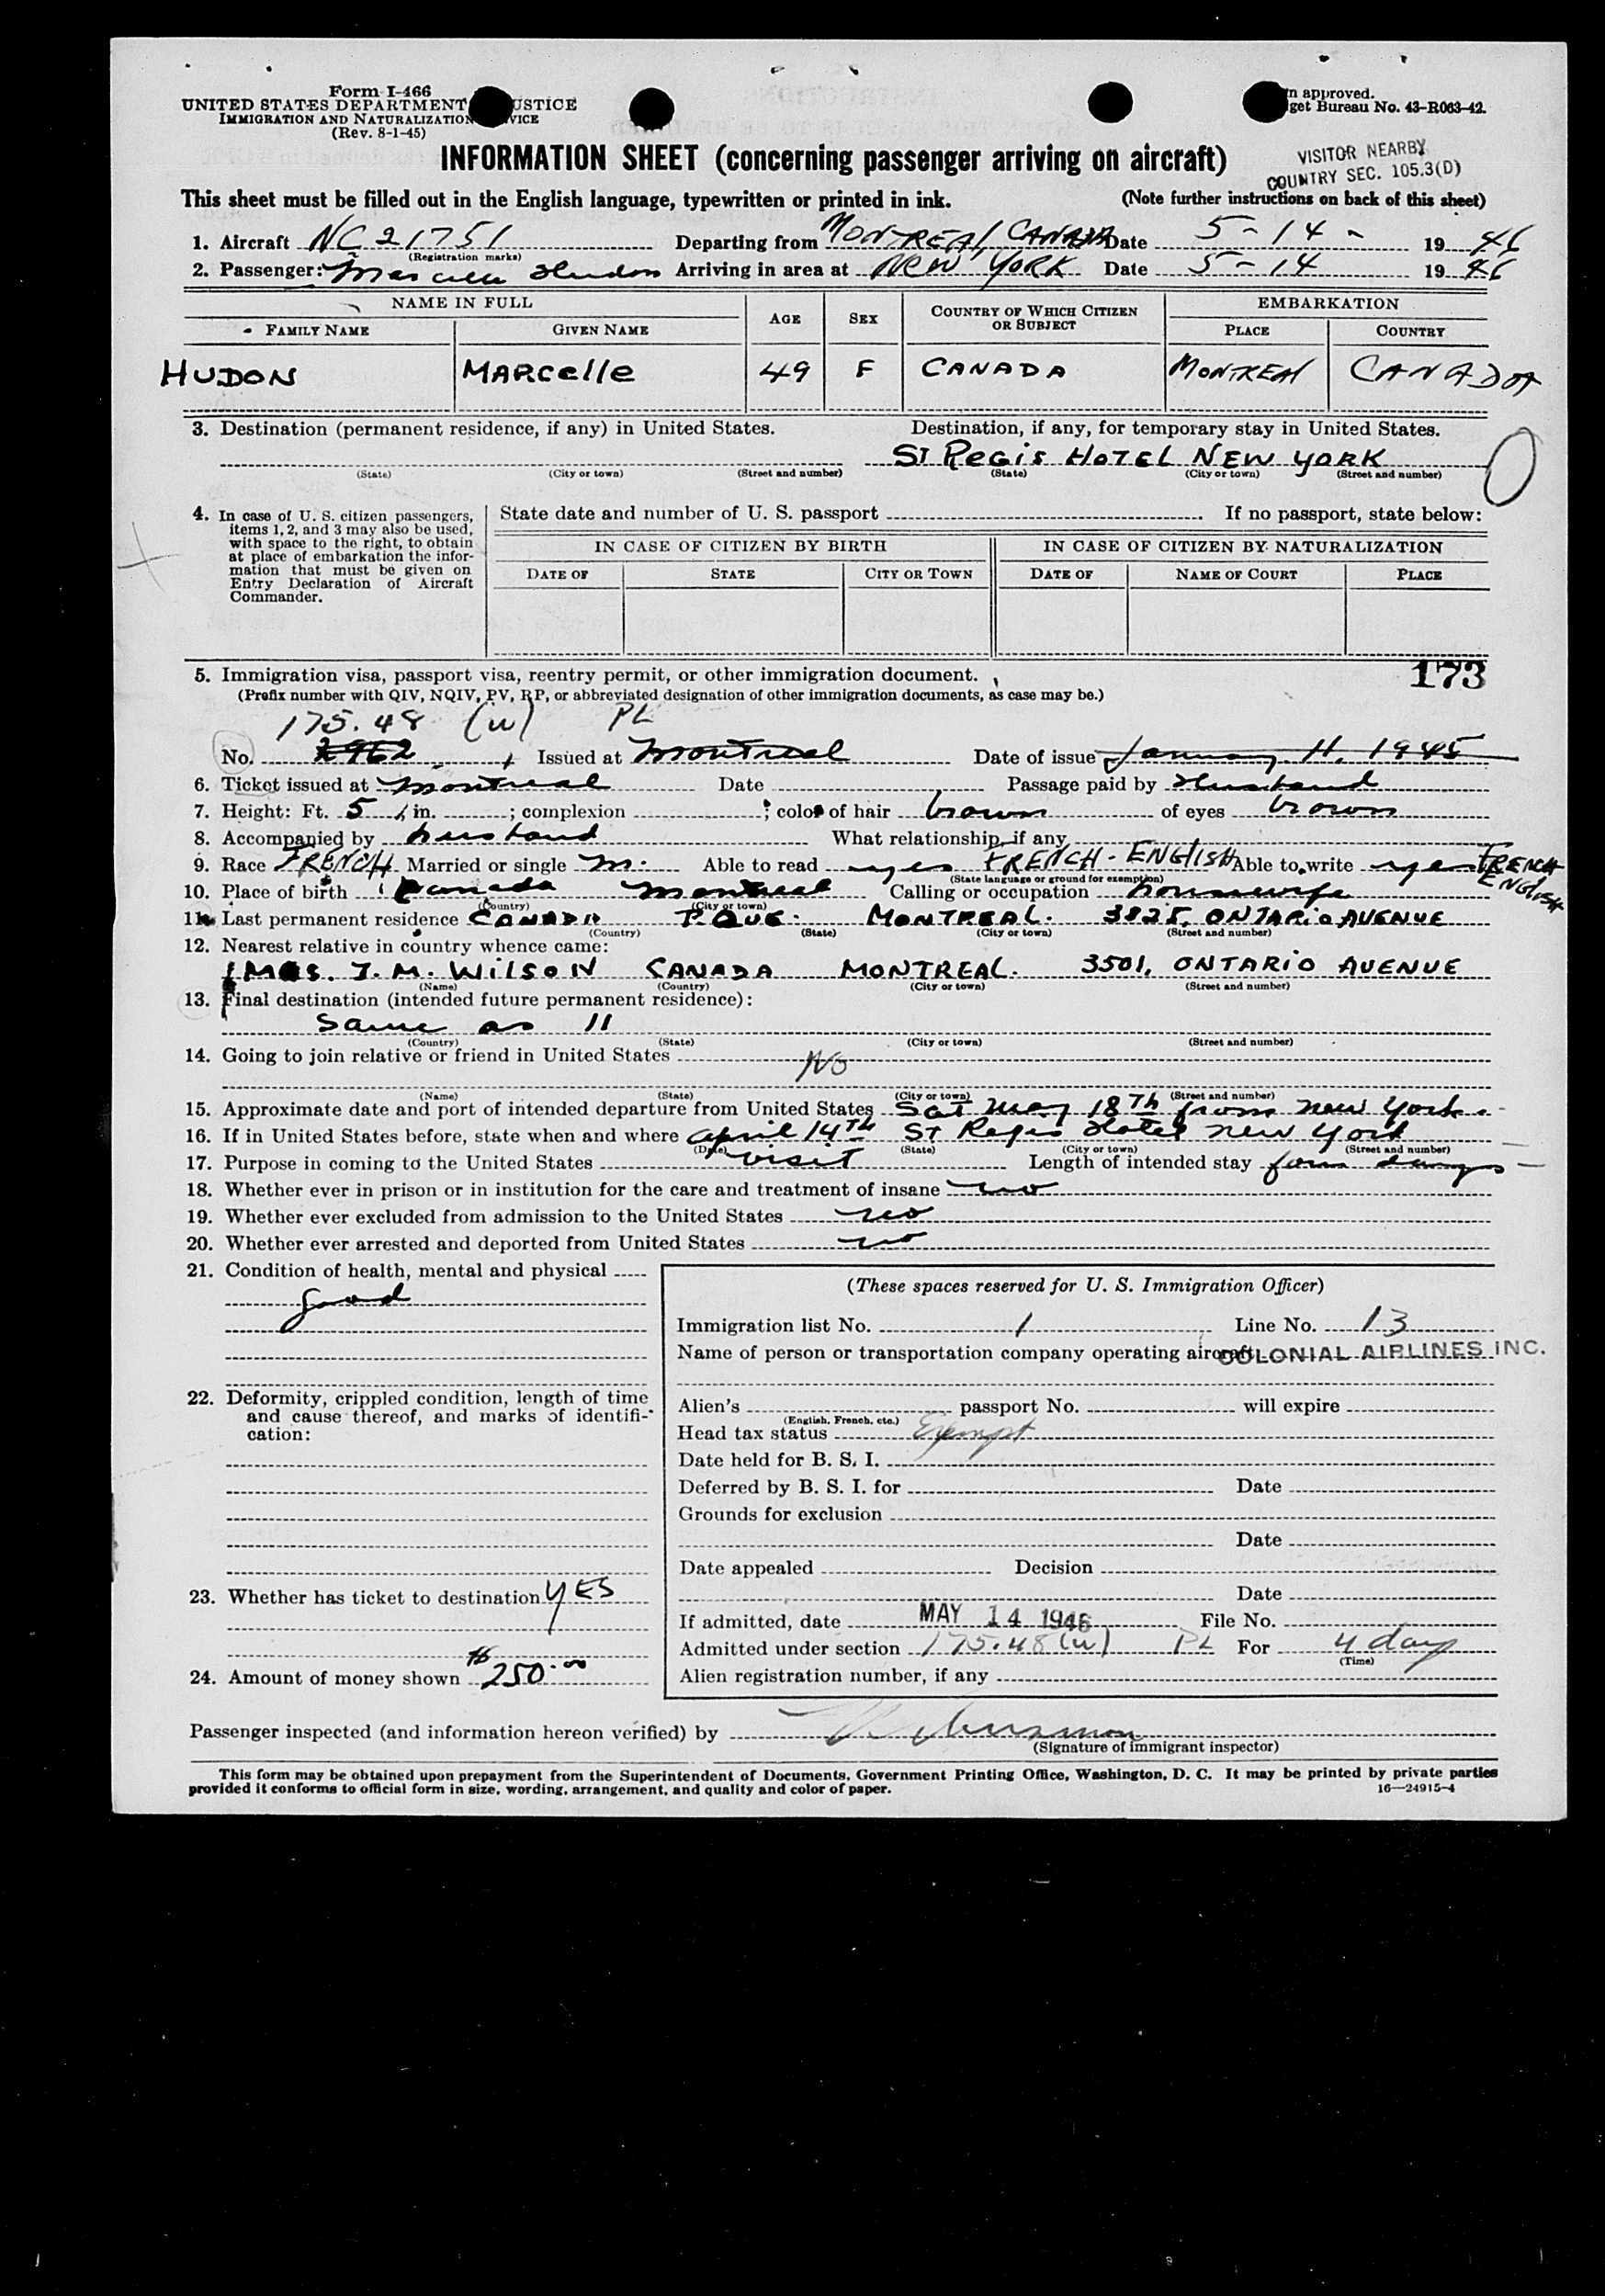 Form I-466
UNITED STATES DEPARTMENT USTICE
IMMIGRATION AND NATURALIZATION VICE
(Rev. 8-1-45)
n approved.
get Bureau No. 43-R063-42.
INFORMATION SHEET (concerning passenger arriving on aircraft)
VISITOR NEARBY
COUNTRY SEC. 105.3(D)
This sheet must be filled out in the English language, typewritten or printed in ink. (Note further instructions on back of this sheet)
1. Aircraft NC 21751 Departing from MONTREAL, CANADA Date 5-14- 1946
(Registration marks)
2. Passenger: Marcelle Hudon Arriving in area at NEW YORK Date 5-14 1946
NAME IN FULL AGE SEX COUNTRY OF WHICH CITIZEN OR SUBJECT EMBARKATION
FAMILY NAME GIVEN NAME PLACE COUNTRY
HUDON MARCelle 49 F CANADA MONTREAL CANADA
3. Destination (permanent residence, if any) in United States. Destination, if any, for temporary stay in United States.
ST REGIS HOTEL NEW YORK
(State) (City or town) (Street and number) (State) (City or town) (Street and number)
4. In case of U. S. citizen passengers, items 1, 2, and 3 may also be used, with space to the right, to obtain at place of embarkation the information that must be given on Entry Declaration of Aircraft Commander.
State date and number of U. S. passport If no passport, state below:
IN CASE OF CITIZEN BY BIRTH IN CASE OF CITIZEN BY NATURALIZATION
DATE OF STATE CITY OR TOWN DATE OF NAME OF COURT PLACE
173
5. Immigration visa, passport visa, reentry permit, or other immigration document.
(Prefix number with QIV, NQIV, PV, RP, or abbreviated designation of other immigration documents, as case may be.)
175.48 (w) PL
No. 2962 Issued at Montreal Date of issue January 11, 1945
6. Ticket issued at Montreal Date Passage paid by Husband
7. Height: Ft. 5 in. ; complexion ; color of hair brown of eyes brown
8. Accompanied by husband What relationship, if any
9. Race FRENCH Married or single M. Able to read yes FRENCH - ENGLISH Able to write yes FRENCH ENGLISH
(State language or ground for exemption)
10. Place of birth Canada Montreal Calling or occupation housewife
(Country) (City or town)
11. Last permanent residence CANADA P. QUE. MONTREAL. 3825, ONTARIO AVENUE
(Country) (State) (City or town) (Street and number)
12. Nearest relative in country whence came:
MRS. J. M. WILSON CANADA MONTREAL. 3501, ONTARIO AVENUE
(Name) (Country) (City or town) (Street and number)
13. Final destination (intended future permanent residence):
Same as 11
(Country) (State) (City or town) (Street and number)
14. Going to join relative or friend in United States NO
(Name) (State) (City or town) (Street and number)
15. Approximate date and port of intended departure from United States Sat May 18th from New York.
16. If in United States before, state when and where April 14th St Regis Hotel New York
(Date) (State) (City or town) (Street and number)
17. Purpose in coming to the United States visit Length of intended stay four days
18. Whether ever in prison or in institution for the care and treatment of insane no
19. Whether ever excluded from admission to the United States no
20. Whether ever arrested and deported from United States no
21. Condition of health, mental and physical
good
22. Deformity, crippled condition, length of time and cause thereof, and marks of identification:
23. Whether has ticket to destination YES
24. Amount of money shown $250.00
(These spaces reserved for U. S. Immigration Officer)
Immigration list No. 1 Line No. 13
Name of person or transportation company operating aircraft COLONIAL AIRLINES INC.
Alien's passport No. will expire
(English, French, etc.)
Head tax status Exempt
Date held for B. S. I.
Deferred by B. S. I. for Date
Grounds for exclusion
Date
Date appealed Decision
Date
If admitted, date MAY 14 1946 File No.
Admitted under section 175.48(w) PL For 4 days
(Time)
Alien registration number, if any
Passenger inspected (and information hereon verified) by
(Signature of immigrant inspector)
This form may be obtained upon prepayment from the Superintendent of Documents, Government Printing Office, Washington, D. C. It may be printed by private parties
provided it conforms to official form in size, wording, arrangement, and quality and color of paper. 16—24915-4